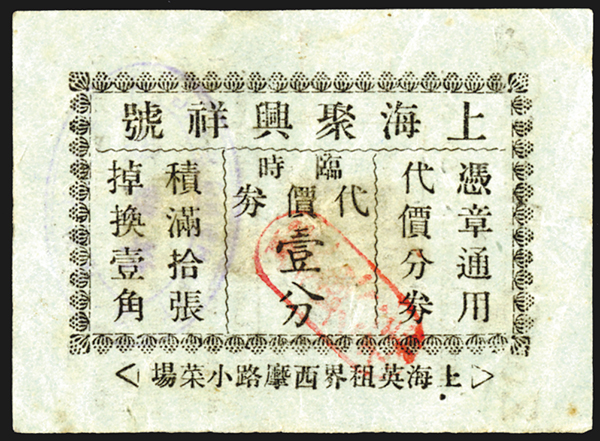 上海聚興祥號
憑章通用
代價分券
臨時
代價券
壹分
積滿拾張
掉換壹角
上海英租界西摩路小菜場